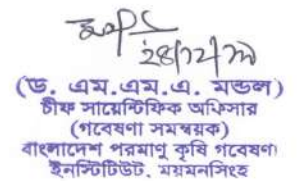 ২৪/১২/২৯
(ড. এম.এম.এ. মন্ডল)
চীফ সায়েন্টিফিক অফিসার
(গবেষণা সমন্বয়ক)
বাংলাদেশ পরমাণু কৃষি গবেষণা
ইনস্টিটিউট, ময়মনসিংহ